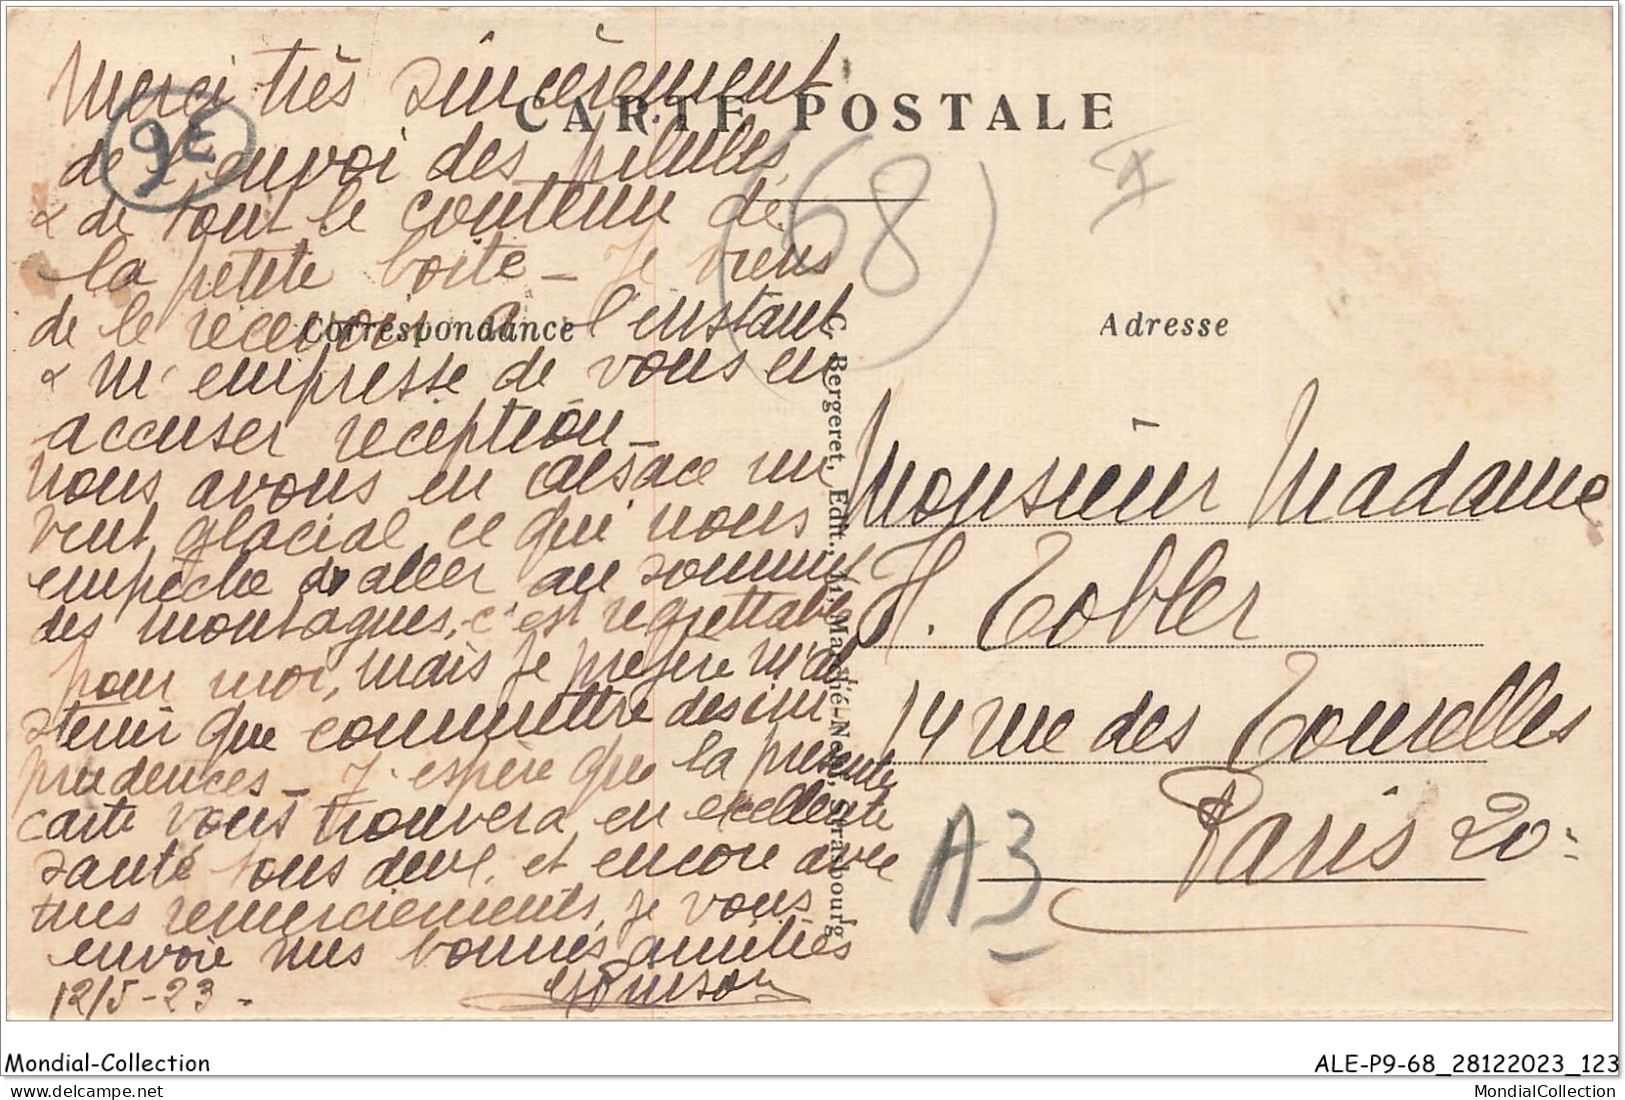 CARTE POSTALE
Correspondance
Adresse
C. Bergeret, Edit., Marché-Neuf, Strasbourg
Merci très sincèrement
de l'envoi des pilules
& de tout le contenu de
la petite boîte - Je viens
de le recevoir à l'instant
& m'empresse de vous en
accuser réception -
Nous avons en Alsace un
vent glacial ce qui nous
empêche d'aller au sommet
des montagnes, c'est regrettable
pour moi, mais je préfère m'ab
stenir que commettre des im
prudences - J'espère que la présente
carte vous trouvera en excellente
santé tous deux, et encore avec
mes remerciements, je vous
envoie mes bonnes amitiés
12/5-23 -
Monsieur Madame
H. Tobler
14 rue des Tourelles
Paris 20
9E
(68)
A3
Mondial-Collection
ALE-P9-68_28122023_123
delcampe.net
MondialCollection